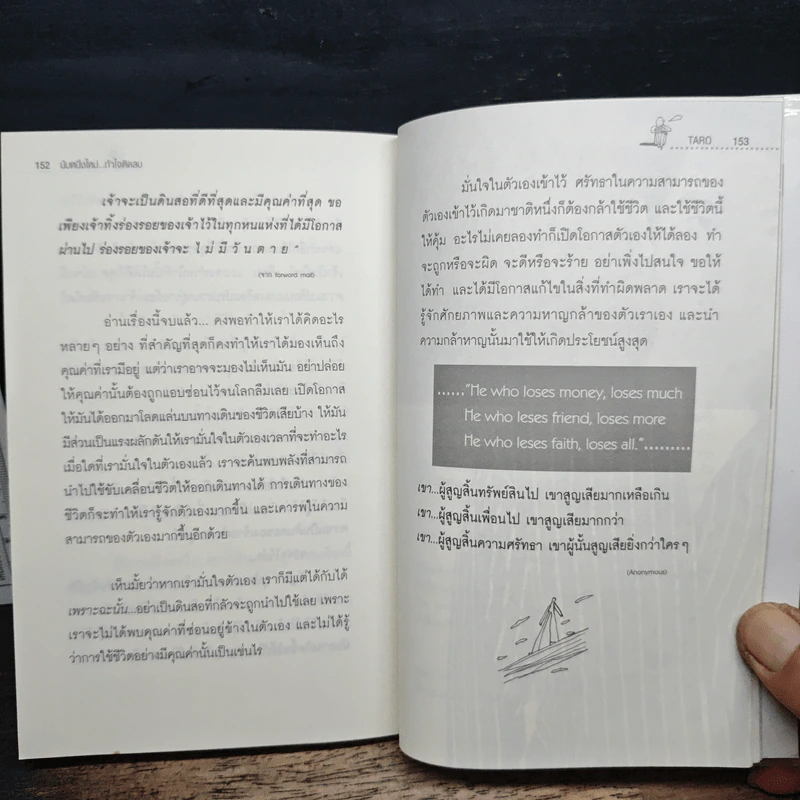 152 นับหนึ่งใหม่...ถ้าใจติดลบ
เจ้าจะเป็นดินสอที่ดีที่สุดและมีคุณค่าที่สุด ขอ
เพียงเจ้าทิ้งร่องรอยของเจ้าไว้ในทุกหนแห่งที่ได้มีโอกาส
ผ่านไป ร่องรอยของเจ้าจะ ไ ม่ มี วั น ต า ย "
(จาก forword mail)
อ่านเรื่องนี้จบแล้ว... คงพอทำให้เราได้คิดอะไร
หลายๆ อย่าง ที่สำคัญที่สุดก็คงทำให้เราได้มองเห็นถึง
คุณค่าที่เรามีอยู่ แต่ว่าเราอาจจะมองไม่เห็นมัน อย่าปล่อย
ให้คุณค่านั้นต้องถูกแอบซ่อนไว้จนโลกลืมเลย เปิดโอกาส
ให้มันได้ออกมาโลดแล่นบนทางเดินของชีวิตเสียบ้าง ให้มัน
มีส่วนเป็นแรงผลักดันให้เรามั่นใจในตัวเองเวลาที่จะทำอะไร
เมื่อใดที่เรามั่นใจในตัวเองแล้ว เราจะค้นพบพลังที่สามารถ
นำไปใช้ขับเคลื่อนชีวิตให้ออกเดินทางได้ การเดินทางของ
ชีวิตก็จะทำให้เรารู้จักตัวเองมากขึ้น และเคารพในความ
สามารถของตัวเองมากขึ้นอีกด้วย
เห็นมั้ยว่าหากเรามั่นใจตัวเอง เราก็มีแต่ได้กับได้
เพราะฉะนั้น...อย่าเป็นดินสอที่กลัวจะถูกนำไปใช้เลย เพราะ
เราจะไม่ได้พบคุณค่าที่ซ่อนอยู่ข้างในตัวเอง และไม่ได้รู้
ว่าการใช้ชีวิตอย่างมีคุณค่านั้นเป็นเช่นไร
TARO 153
มั่นใจในตัวเองเข้าไว้ ศรัทธาในความสามารถของ
ตัวเองเข้าไว้เกิดมาชาติหนึ่งก็ต้องกล้าใช้ชีวิต และใช้ชีวิตนี้
ให้คุ้ม อะไรไม่เคยลองทำก็เปิดโอกาสตัวเองให้ได้ลอง ทำ
จะถูกหรือจะผิด จะดีหรือจะร้าย อย่าเพิ่งไปสนใจ ขอให้
ได้ทำ และได้มีโอกาสแก้ไขในสิ่งที่ทำผิดพลาด เราจะได้
รู้จักศักยภาพและความหาญกล้าของตัวเราเอง และนำ
ความกล้าหาญนั้นมาใช้ให้เกิดประโยชน์สูงสุด
......"He who loses money, loses much
He who leses friend, loses more
He who leses faith, loses all.".........
เขา...ผู้สูญสิ้นทรัพย์สินไป เขาสูญเสียมากเหลือเกิน
เขา...ผู้สูญสิ้นเพื่อนไป เขาสูญเสียมากกว่า
เขา...ผู้สูญสิ้นความศรัทธา เขาผู้นั้นสูญเสียยิ่งกว่าใครๆ
(Anonymious)